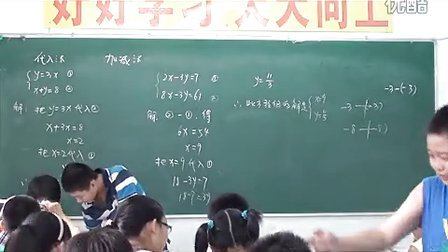 好好学习 天天向上
优酷
代入法
{y=3x ①
x+y=8 ②
解: 把y=3x代入②
x+3x=8
x=2
把x=2代入①
加减法
{2x-1y=7 ①
8x-3y=61 ②
解: ②-①,得
6x=54
x=9
把x=9代入①
18-3y=7
18-7=3y
y=11/3
∴ 此方程组的解是{x=9
y=11/3
-3-(-3)